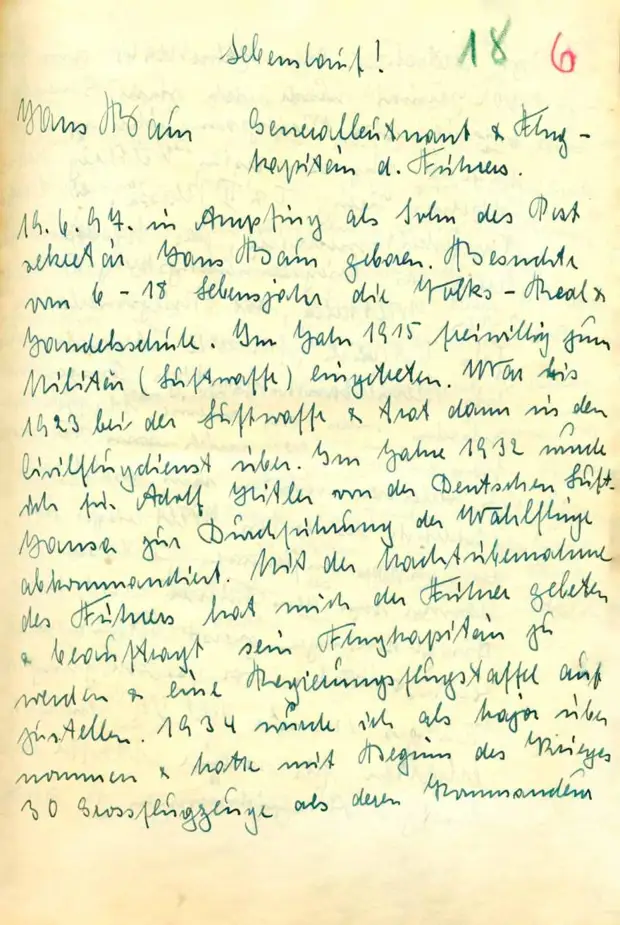 Lebenslauf! 18 6
Hans Baur Generalleutnant & Flug-
kapitän d. Führers.
19.6.97. in Ampfing als Sohn des Post
sekretär Hans Baur geboren. Besuchte
vom 6 - 18 Lebensjahr die Volks- Real &
Handelsschule. Im Jahr 1915 freiwillig zum
Militär (Luftwaffe) eingetreten. War bis
1923 bei der Luftwaffe & trat dann in den
Civilflugdienst über. Im Jahre 1932 wurde
ich für Adolf Hitler von der Deutschen Luft-
Hansa zur Durchführung der Wahlflüge
abkommandiert. Mit der Machtübernahme
des Führers hat mich der Führer gebeten
& beauftragt sein Flugkapitän zu
werden & eine Regierungsflugstaffel auf
zustellen. 1934 wurde ich als Major über
nommen & hatte mit Beginn des Krieges
30 Grossflugzeuge als deren Kommandeur